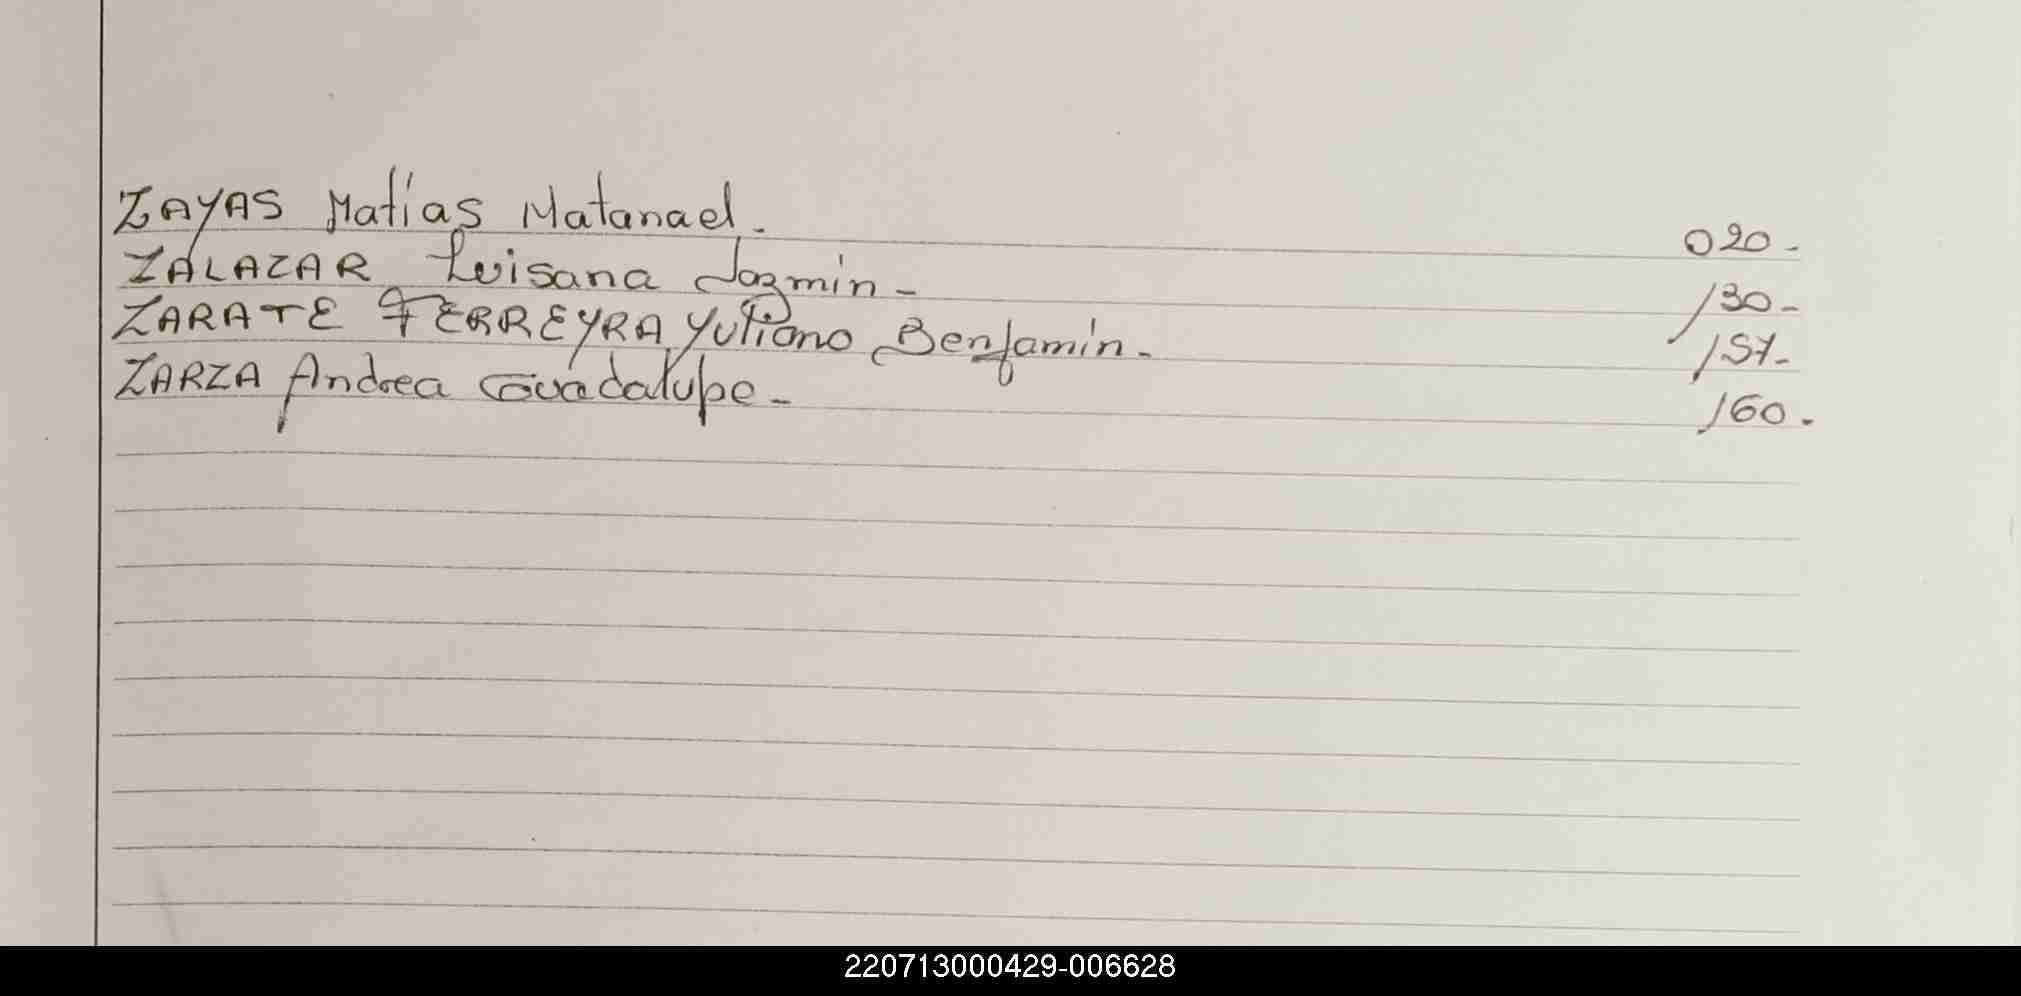 ZAYAS Matías Matanael. 020-
ZALAZAR Luisana Jazmín- 130-
ZARATE FERREYRA Yuliano Benjamín- 151-
ZARZA Andrea Guadalupe- 160.
220713000429-006628